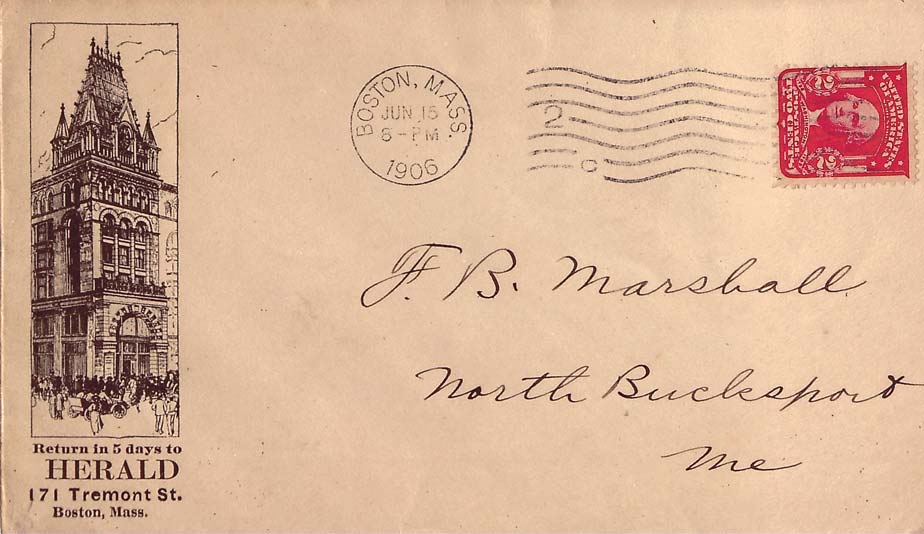 BOSTON, MASS
JUN 15
8-PM
1906
2
C
UNITED STATES
OF AMERICA
POSTAGE
2 TWO CENTS 2
F. B. Marshall
North Bucksport
Me
Return in 5 days to
HERALD
171 Tremont St.
Boston, Mass.